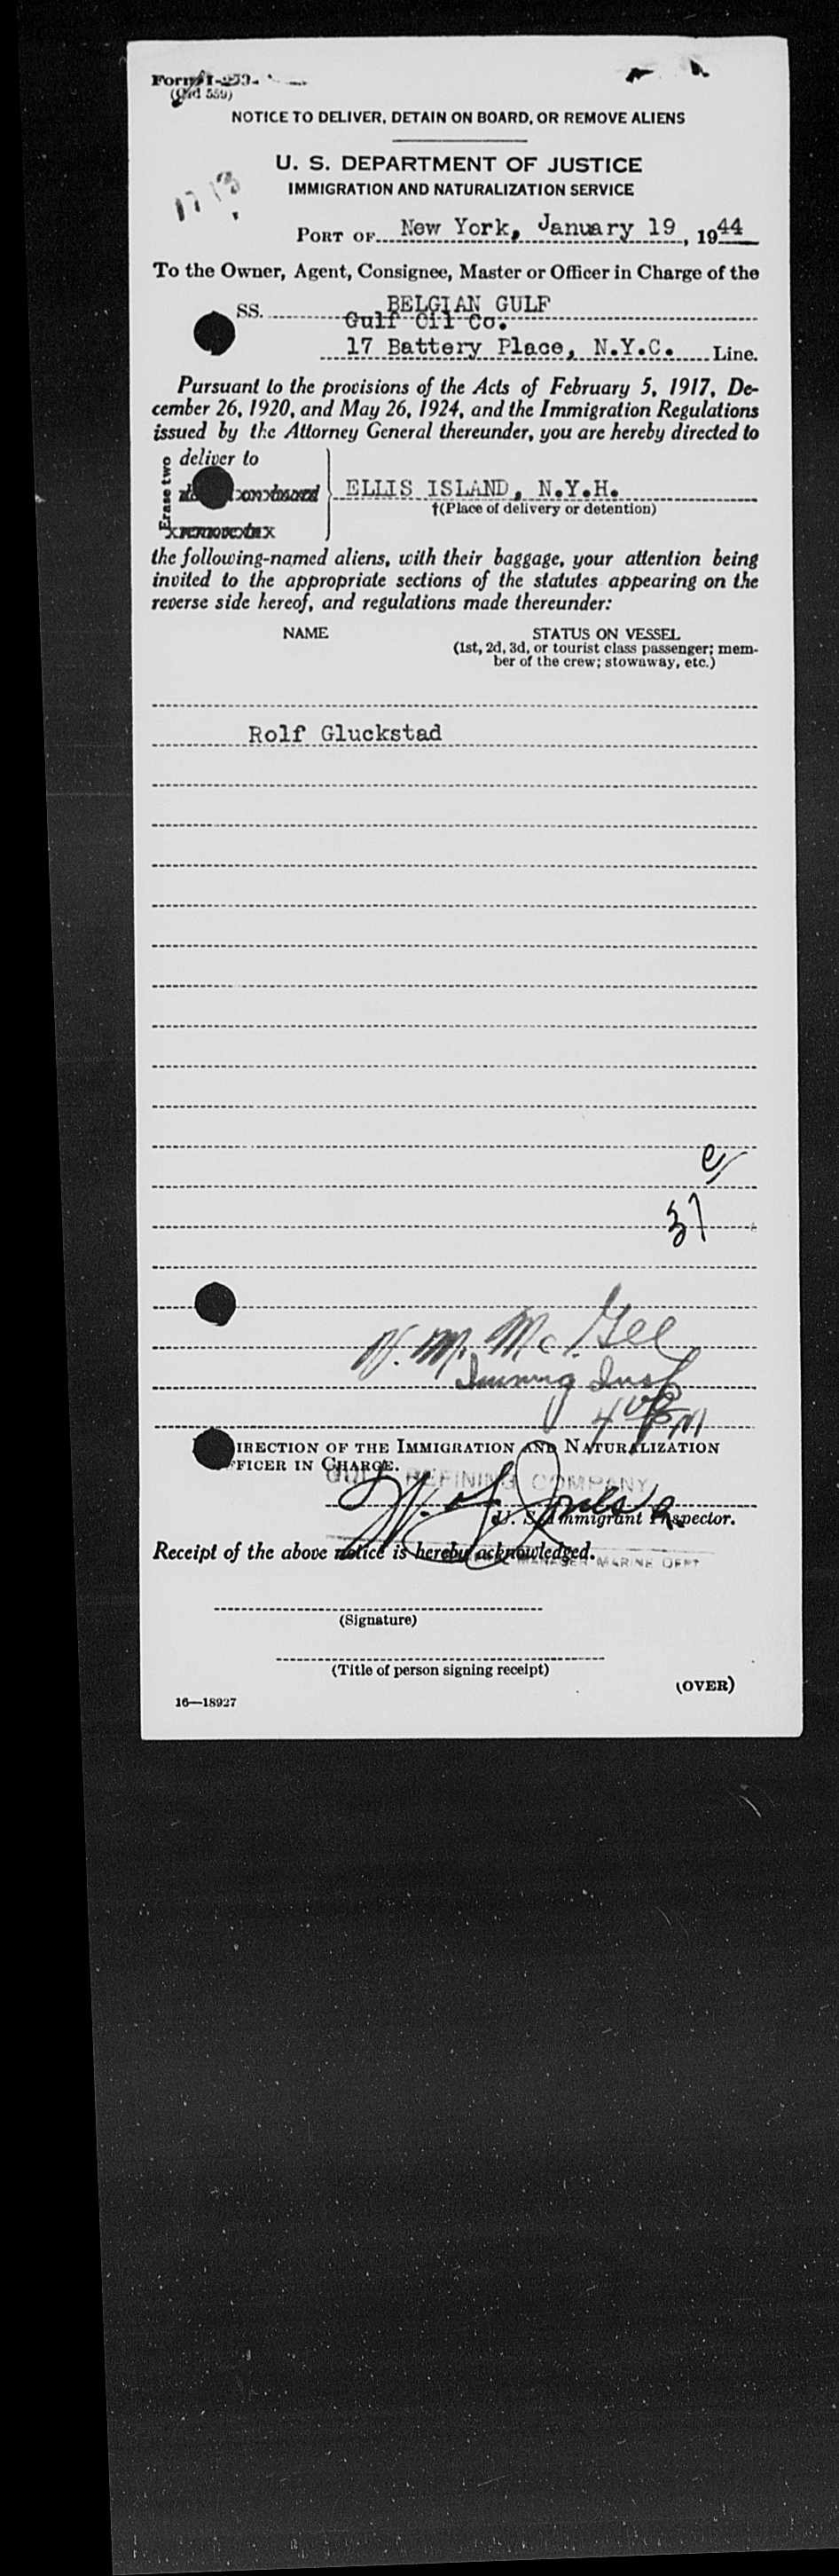 Form I-259
(Old 559)
NOTICE TO DELIVER, DETAIN ON BOARD, OR REMOVE ALIENS
U. S. DEPARTMENT OF JUSTICE
IMMIGRATION AND NATURALIZATION SERVICE
PORT OF New York, January 19, 1944
To the Owner, Agent, Consignee, Master or Officer in Charge of the
SS. BELGIAN GULF
Gulf Oil Co.
17 Battery Place, N.Y.C. Line.
Pursuant to the provisions of the Acts of February 5, 1917, De-
cember 26, 1920, and May 26, 1924, and the Immigration Regulations
issued by the Attorney General thereunder, you are hereby directed to
Erase two
deliver to
on board
ELLIS ISLAND, N.Y.H.
†(Place of delivery or detention)
remove
the following-named aliens, with their baggage, your attention being
invited to the appropriate sections of the statutes appearing on the
reverse side hereof, and regulations made thereunder:
NAME STATUS ON VESSEL
(1st, 2d, 3d, or tourist class passenger; mem-
ber of the crew; stowaway, etc.)
Rolf Gluckstad
e
37
N. M. Mc.Gee
Immig Insp
4 PM
IRECTION OF THE IMMIGRATION AND NATURALIZATION
FFICER IN CHARGE.
GULF REFINING COMPANY
U. S. Immigrant Inspector.
Receipt of the above notice is hereby acknowledged.
MANAGER MARINE DEPT
(Signature)
(Title of person signing receipt)
(OVER)
16—18927